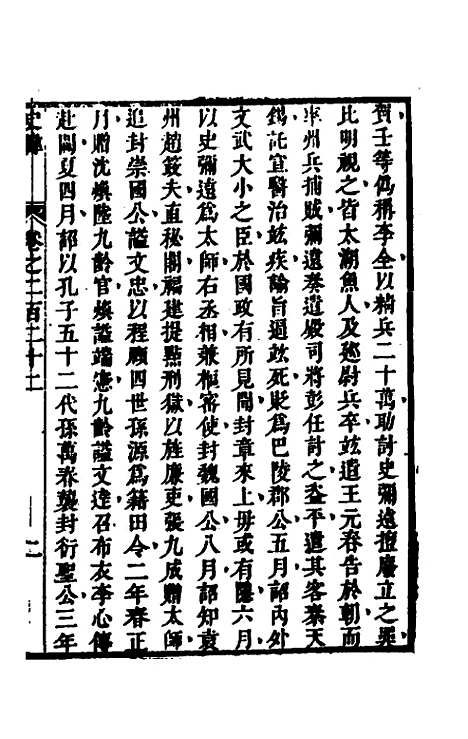 賀壬等僞稱李全以精兵二十萬助討史彌遠擅廢立之罪
比明視之皆太湖魚人及廵尉兵卒竑遣王元春告於朝而
率州兵捕賊彌遠奏遣殿司將彭任討之至平遣其客秦天
錫託宜醫治竑疾諭旨逼竑死貶爲巴陵郡公五月詔內外
文武大小之臣於國政有所見聞封章來上毋或有隱六月
以史彌遠爲太師右丞相兼樞密使封魏國公八月詔知袁
州趙䈣夫直秘閣福建提點刑獄以旌廉吏張九成贈太師
追封崇國公謚文忠以程頤四世孫源爲籍田令二年春正
月贈沈煥陸九齡官煥謚端憲九齡謚文達召布衣李心傳
赴闕夏四月詔以孔子五十二代孫萬春襲封衍聖公三年
卷之二百二十二
二